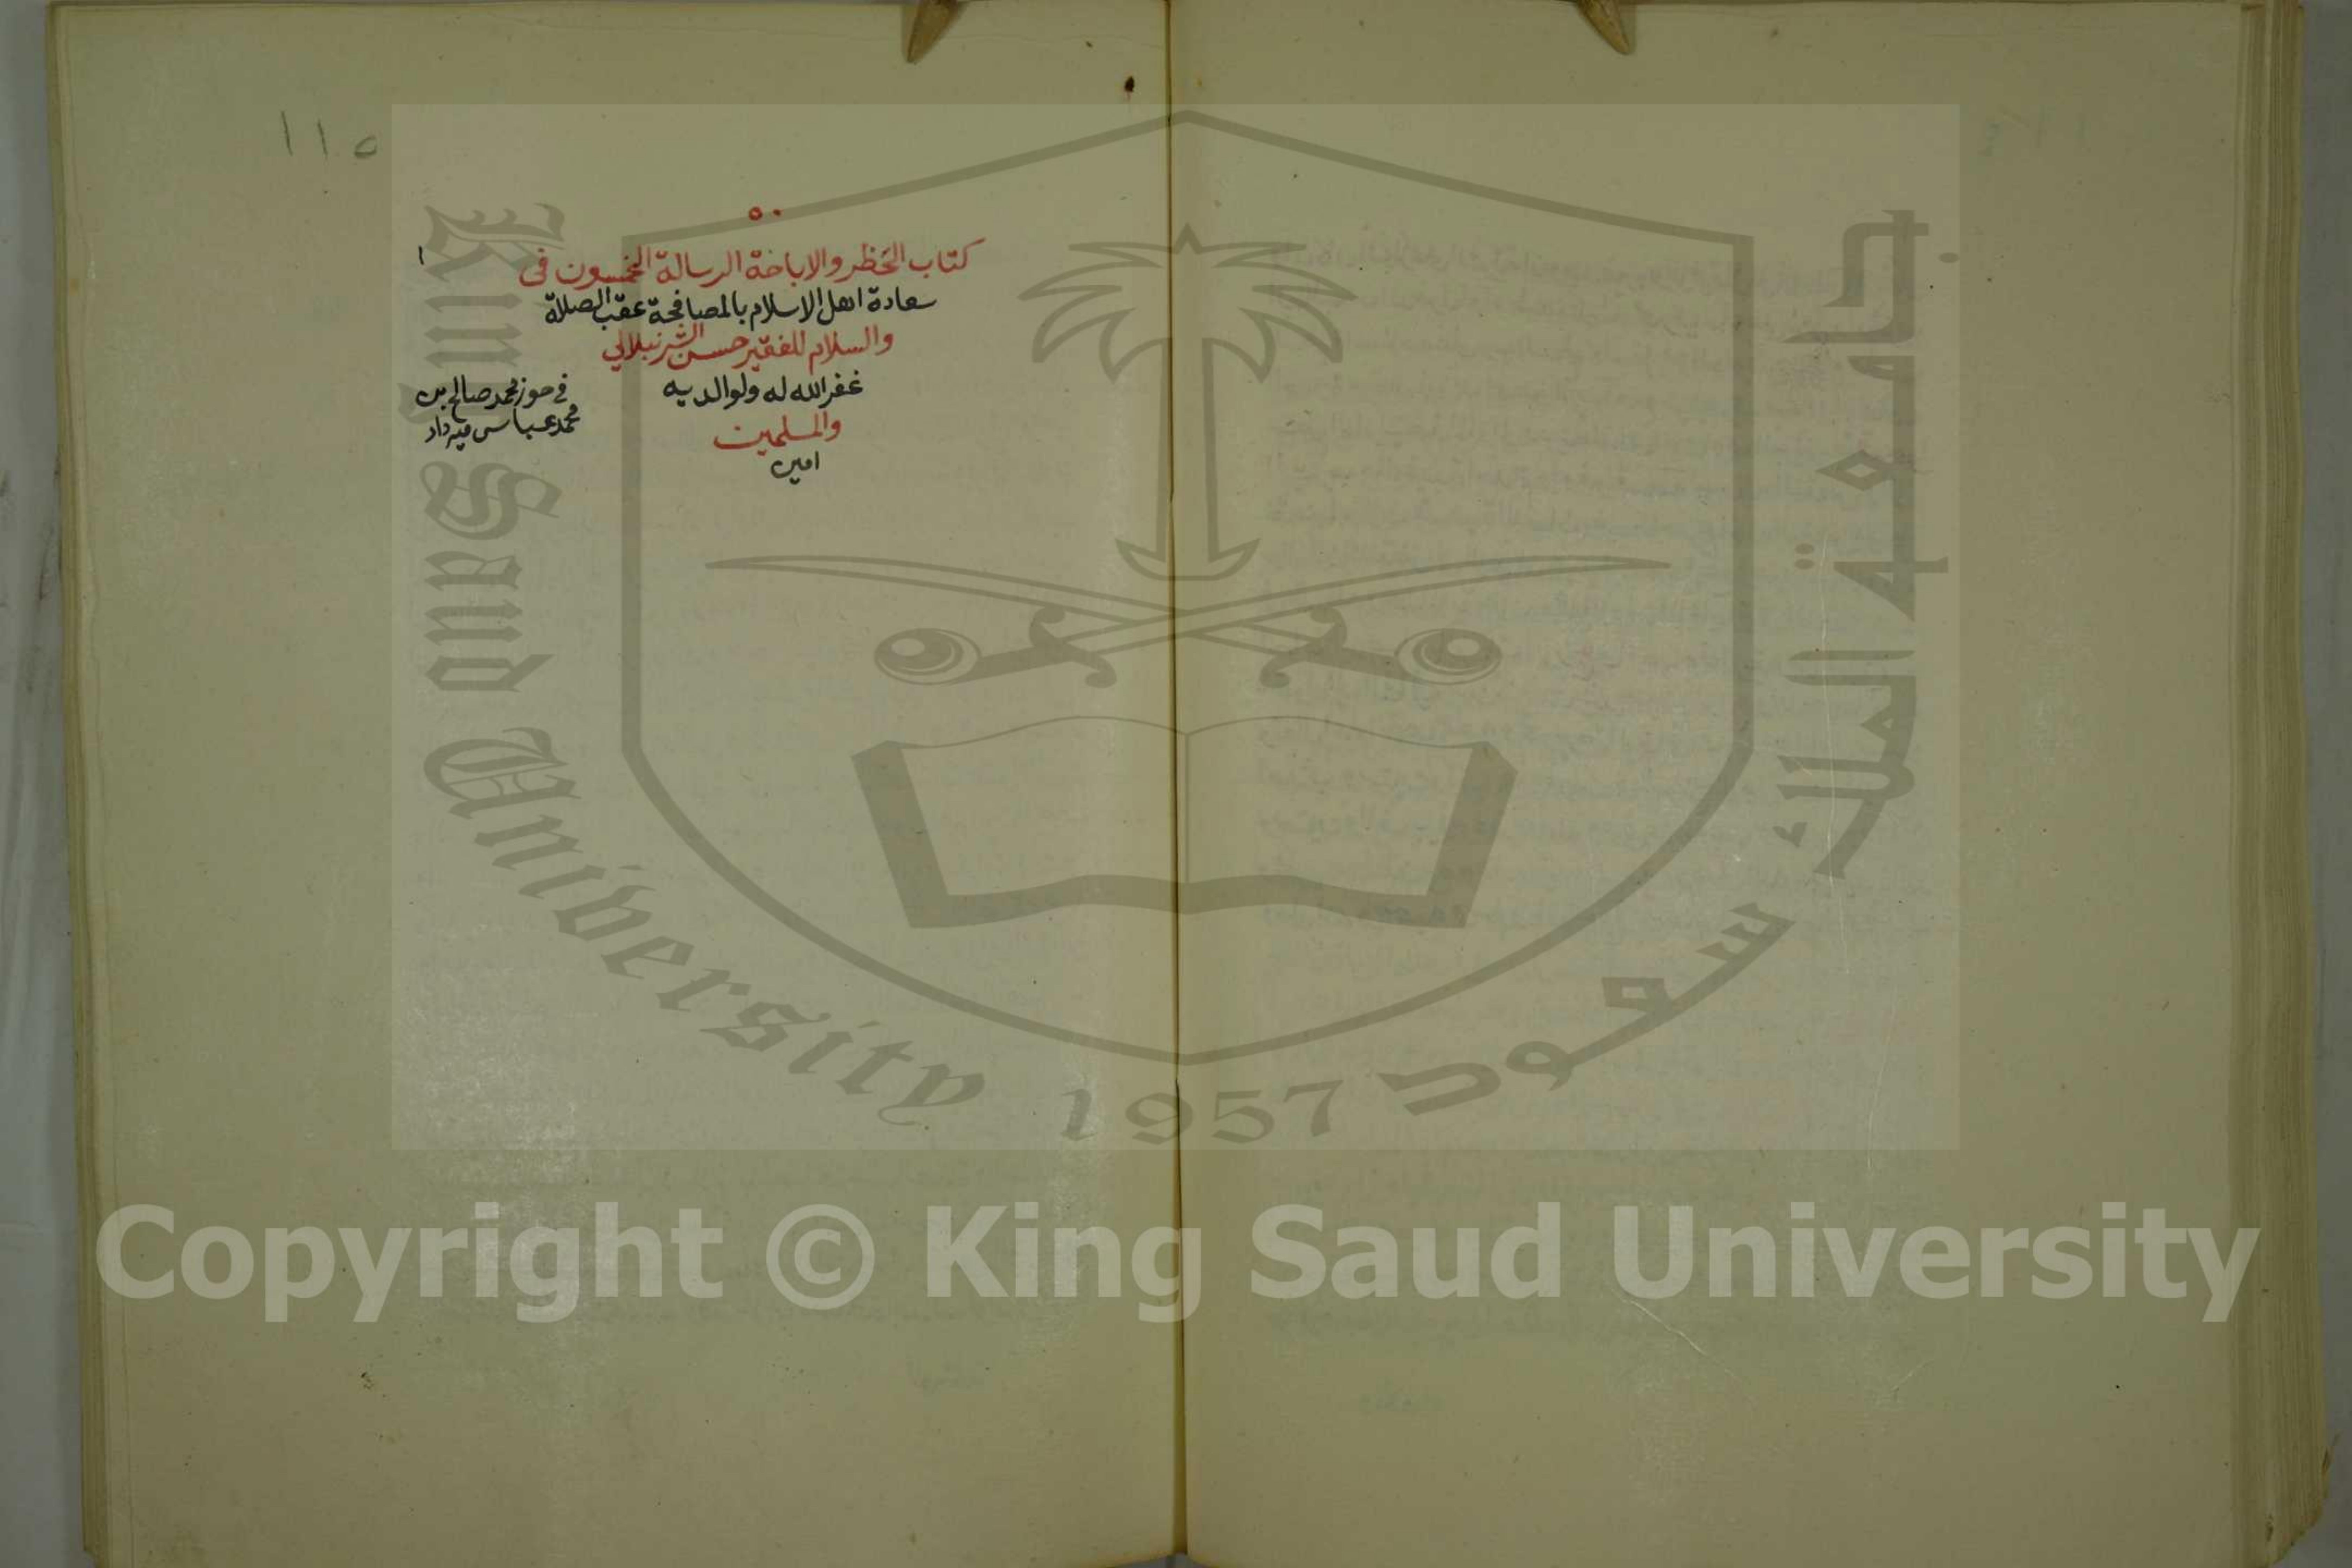 ١١٥
٥٠
١
كتاب الحظر والاباحة الرسالة الخمسون فى
سعادة اهل الاسلام بالمصافحة عقب الصلاة
والسلام للفقير حسن الشرنبلالي
غفر الله له ولوالديه
والمسلمين
امين
في حوز محمد صالح بن
محمد عباس ميرداد
King Saud University
1957
جامعة الملك سعود
Copyright © King Saud University